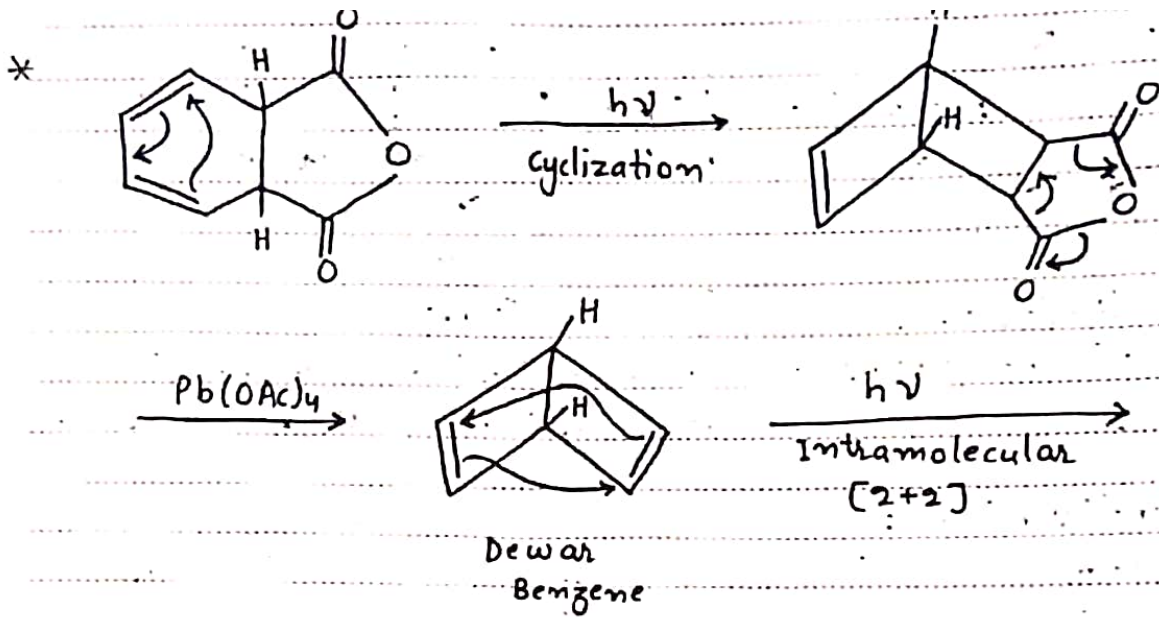 *
O
H
O
H
O
hν
Cyclization
H
O
O
O
Pb(OAc)4
H
H
Dewar
Benzene
hν
Intramolecular
[2+2]